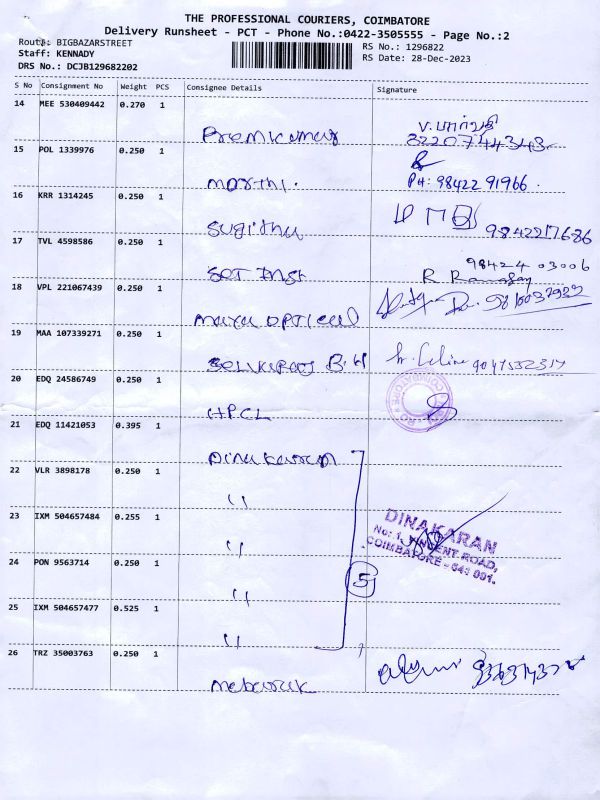 THE PROFESSIONAL COURIERS, COIMBATORE
Delivery Runsheet - PCT - Phone No.:0422-3505555 - Page No.:2
Route: BIGBAZARSTREET
RS No.: 1296822
Staff: KENNADY
RS Date: 28-Dec-2023
DRS No.: DCJB129682202
S No Consignment No Weight PCS Consignee Details Signature
14 MEE 530409442 0.270 1
Premkumar
15 POL 1339976 0.250 1
marthi.
PH: 98422 91966.
16 KRR 1314245 0.250 1
Sugithu
9842217686
17 TVL 4598586 0.250 1
98424 03006
SET Inst
R
18 VPL 221067439 0.250 1
maya optical
19 MAA 107339271 0.250 1
Selvaraj B.H
20 EDQ 24586749 0.250 1
HPCL
COIMBATORE
21 EDQ 11421053 0.395 1
Dinakaran
22 VLR 3898178 0.250 1
"
23 IXM 504657484 0.255 1
DINAKARAN
No: 1, VINCENT ROAD,
COIMBATORE - 641 001.
"
24 PON 9563714 0.250 1
5
"
25 IXM 504657477 0.525 1
"
26 TRZ 35003763 0.250 1
mebaruk